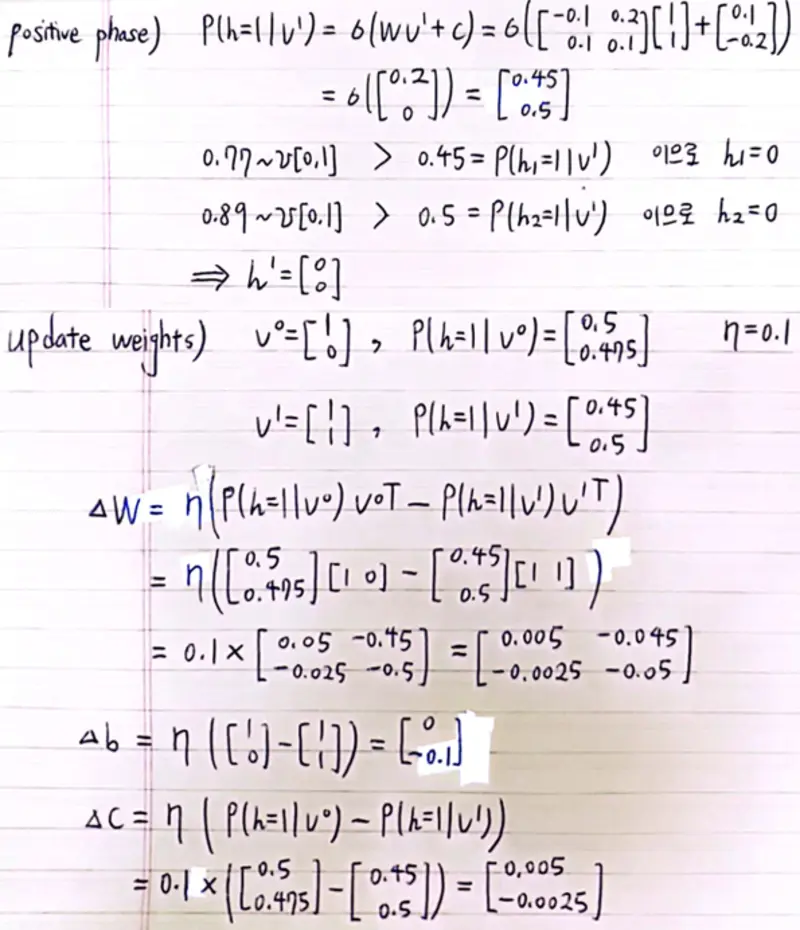 positive phase) P(h=1|v') = б(Wv'+c) = б([-0.1 0.2; 0.1 0.1][1; 1]+[0.1; -0.2])
= б([0.2; 0]) = [0.45; 0.5]
0.77~U[0,1] > 0.45 = P(h1=1|v') 이므로 h1=0
0.89~U[0.1] > 0.5 = P(h2=1|v') 이므로 h2=0
⇒ h'=[0; 0]
update weights) v⁰=[1; 0], P(h=1|v⁰)=[0.5; 0.475] η=0.1
v'=[1; 1], P(h=1|v')=[0.45; 0.5]
△W = η(P(h=1|v⁰)v⁰T - P(h=1|v')v'T)
= η([0.5; 0.475][1 0] - [0.45; 0.5][1 1])
= 0.1×[0.05 -0.45; -0.025 -0.5] = [0.005 -0.045; -0.0025 -0.05]
△b = η([1; 0]-[1; 1]) = [0; -0.1]
△C = η(P(h=1|v⁰) - P(h=1|v'))
= 0.1×([0.5; 0.475]-[0.45; 0.5]) = [0.005; -0.0025]